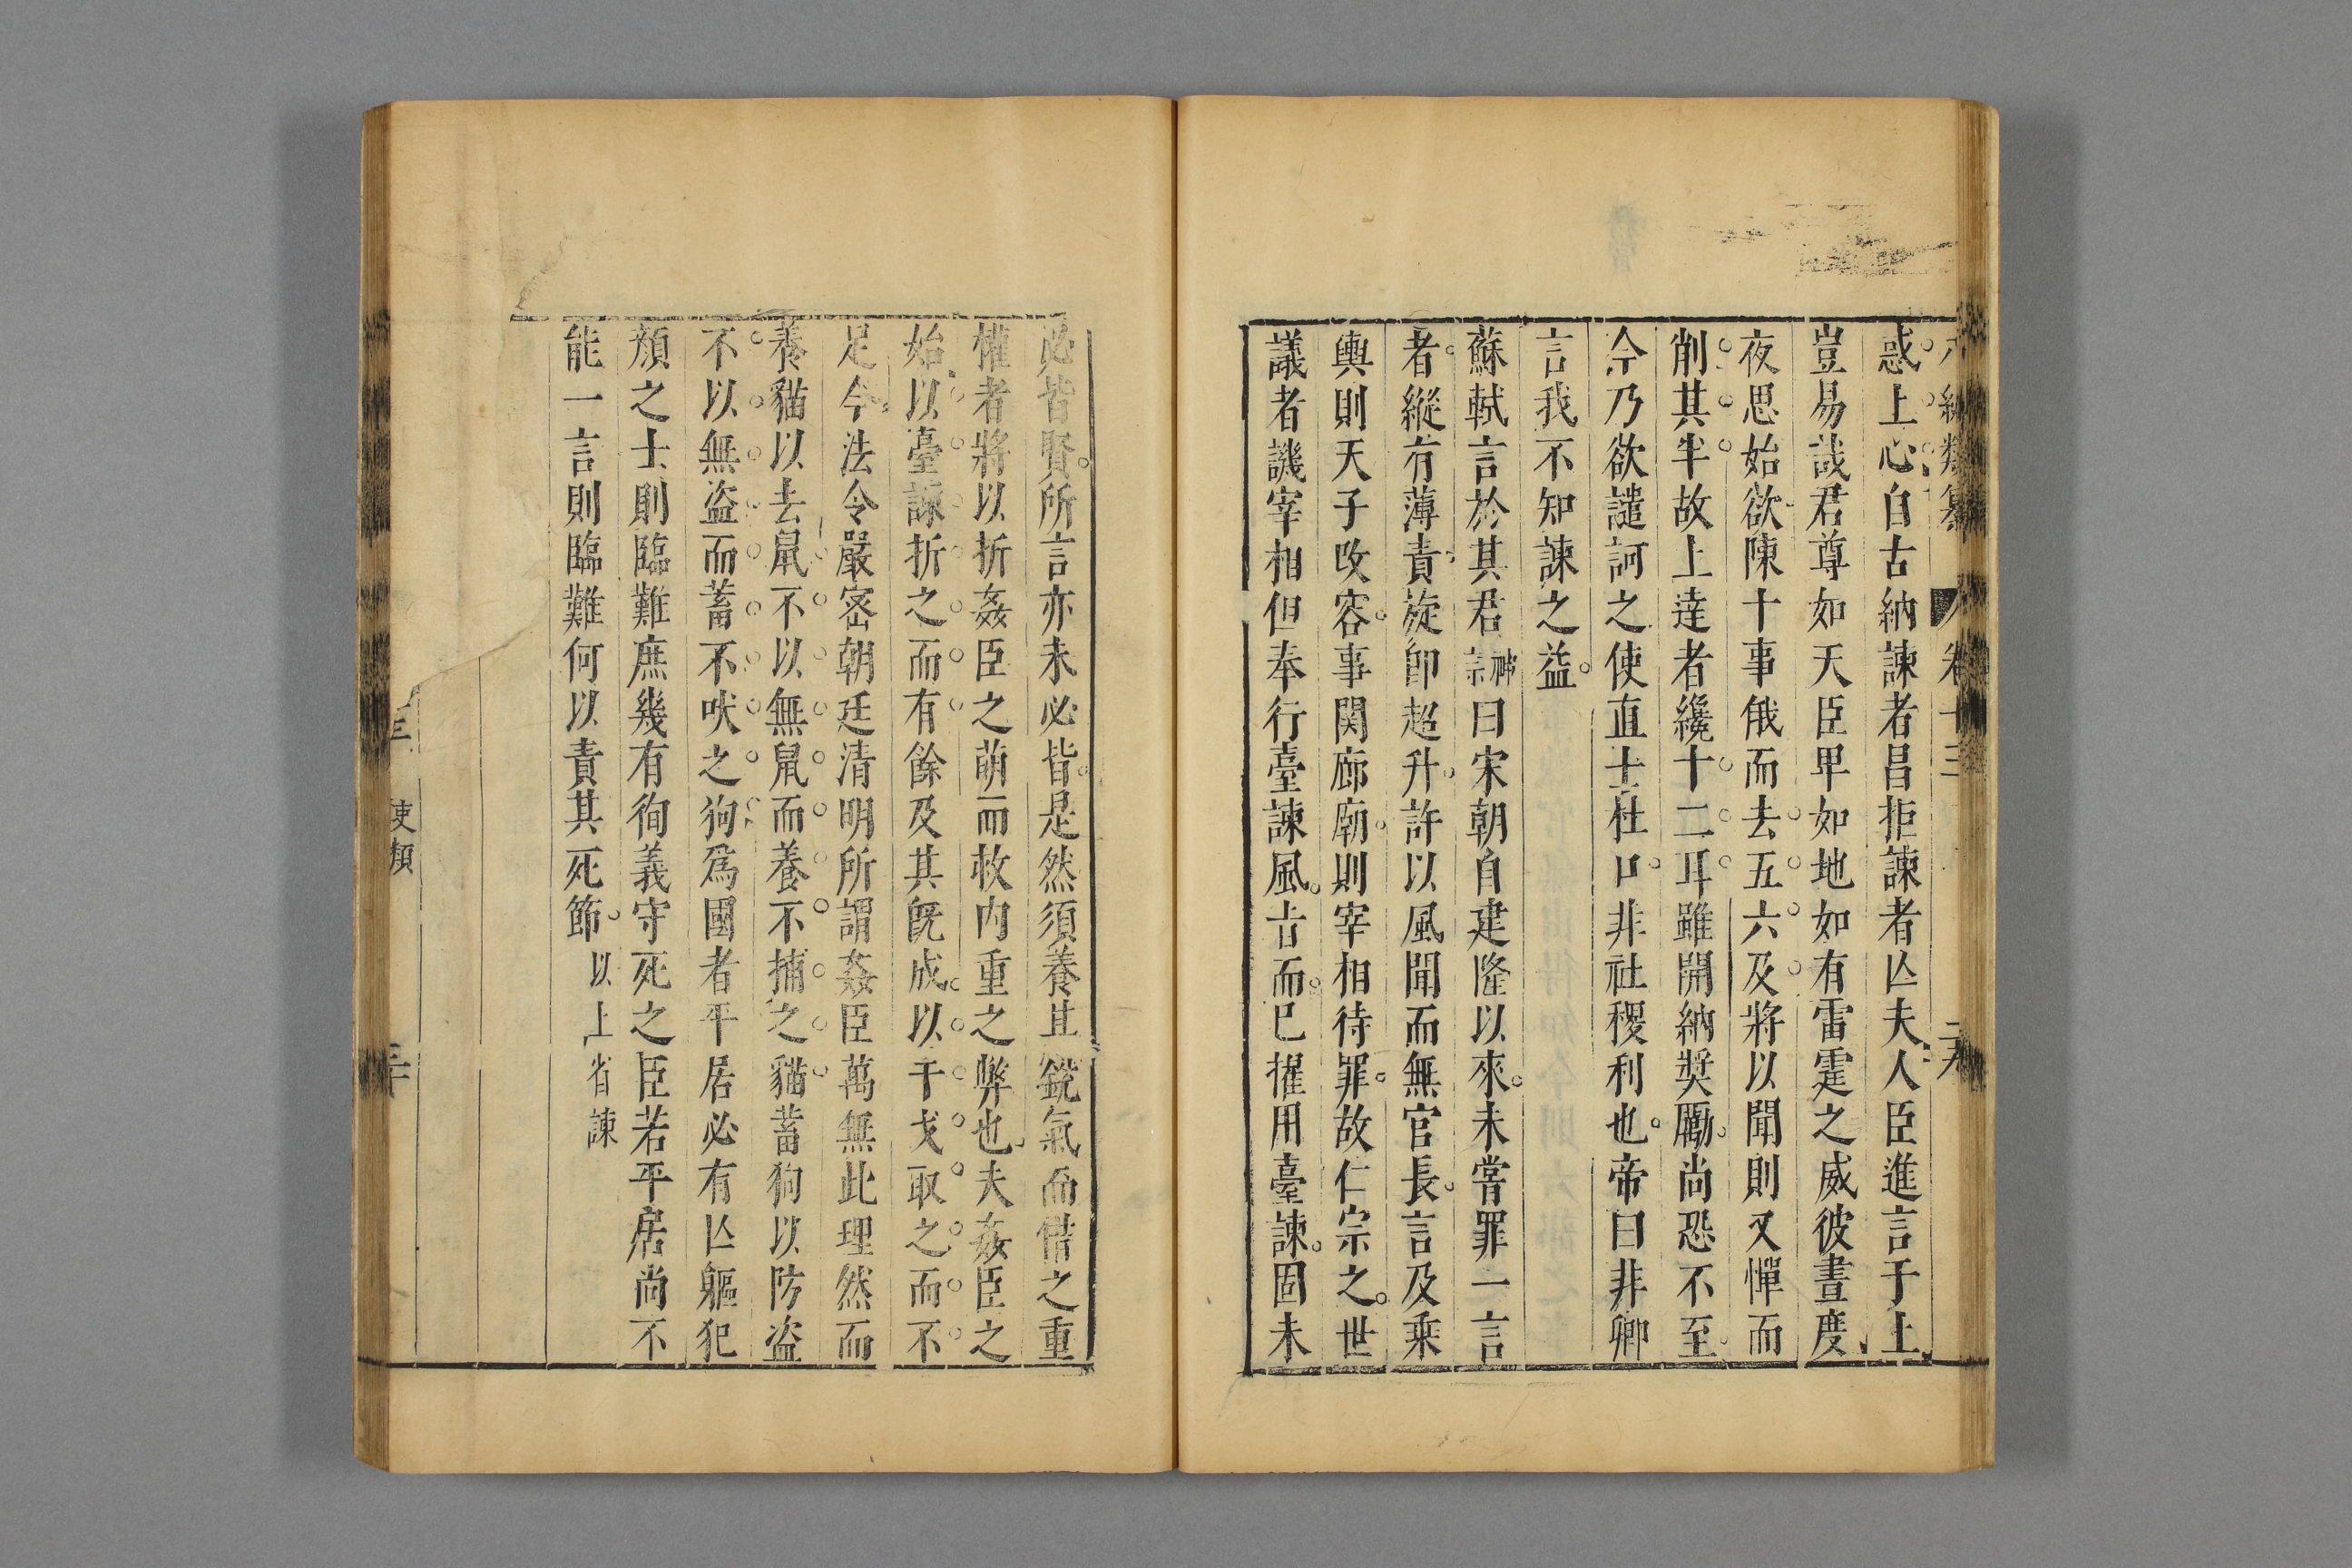 編類纂 卷十三 二十九
惑上心自古納諫者昌拒諫者亾夫人臣進言于上
豈易哉君尊如天臣卑如地如有雷霆之威彼晝度
夜思始欲陳十事俄而去五六及將以聞則又憚而
削其半故上達者纔十二耳雖開納奨勵尚恐不至
今乃欲譴訶之使直士杜口非社稷利也帝曰非卿
言我不知諫之益
蘇軾言於其君神宗曰宋朝自建隆以來未嘗罪一言
者縱有薄責旋卽超升許以風聞而無官長言及乘
輿則天子改容事関廊廟則宰相待罪故仁宗之世
議者譏宰相但奉行臺諫風㫖而已擢用臺諫固未
必皆賢所言亦未必皆是然須養其銳氣而借之重
權者將以折姦臣之萌而救内重之弊也夫姦臣之
始以臺諫折之而有餘及其既成以干戈取之而不
足今法令嚴密朝廷清明所謂姦臣萬無此理然而
養貓以去鼠不以無鼠而養不捕之貓蓄狗以防盗
不以無盗而蓄不吠之狗爲國者平居必有亾軀犯
顏之士則臨難庶幾有徇義守死之臣若平居尚不
能一言則臨難何以責其死節 以上省諫
吏類 三十